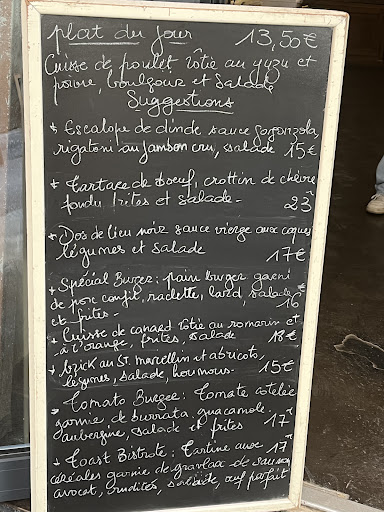 plat du jour 13,50€
Cuisse de poulet rôtie au yuzu et
poivre, boulgour et salade
Suggestions
* Escalope de dinde sauce gorgonzola,
rigatoni au jambon cru, salade 15€
* Tartare de boeuf, crottin de chèvre
fondu frites et salade - 23€
* Dos de lieu noir sauce vierge aux coques
légumes et salade 17€
* Spécial Burger: pain burger garni
de porc confit, raclette, lard, salade
et frites - 16€
* Cuisse de canard rôtie au romarin et
à l'orange, frites, salade 18€
* brick au St. Marcellin et abricots,
légumes, salade, houmous - 15€
* Tomato Burger: tomate côtelée
garnie de burrata, guacamole,
aubergine, salade et frites 17€
* Toast Bistrote: Tartine aux 17€
céréales garnie de gravlax de saumon
avocat, crudités, salade, oeuf parfait